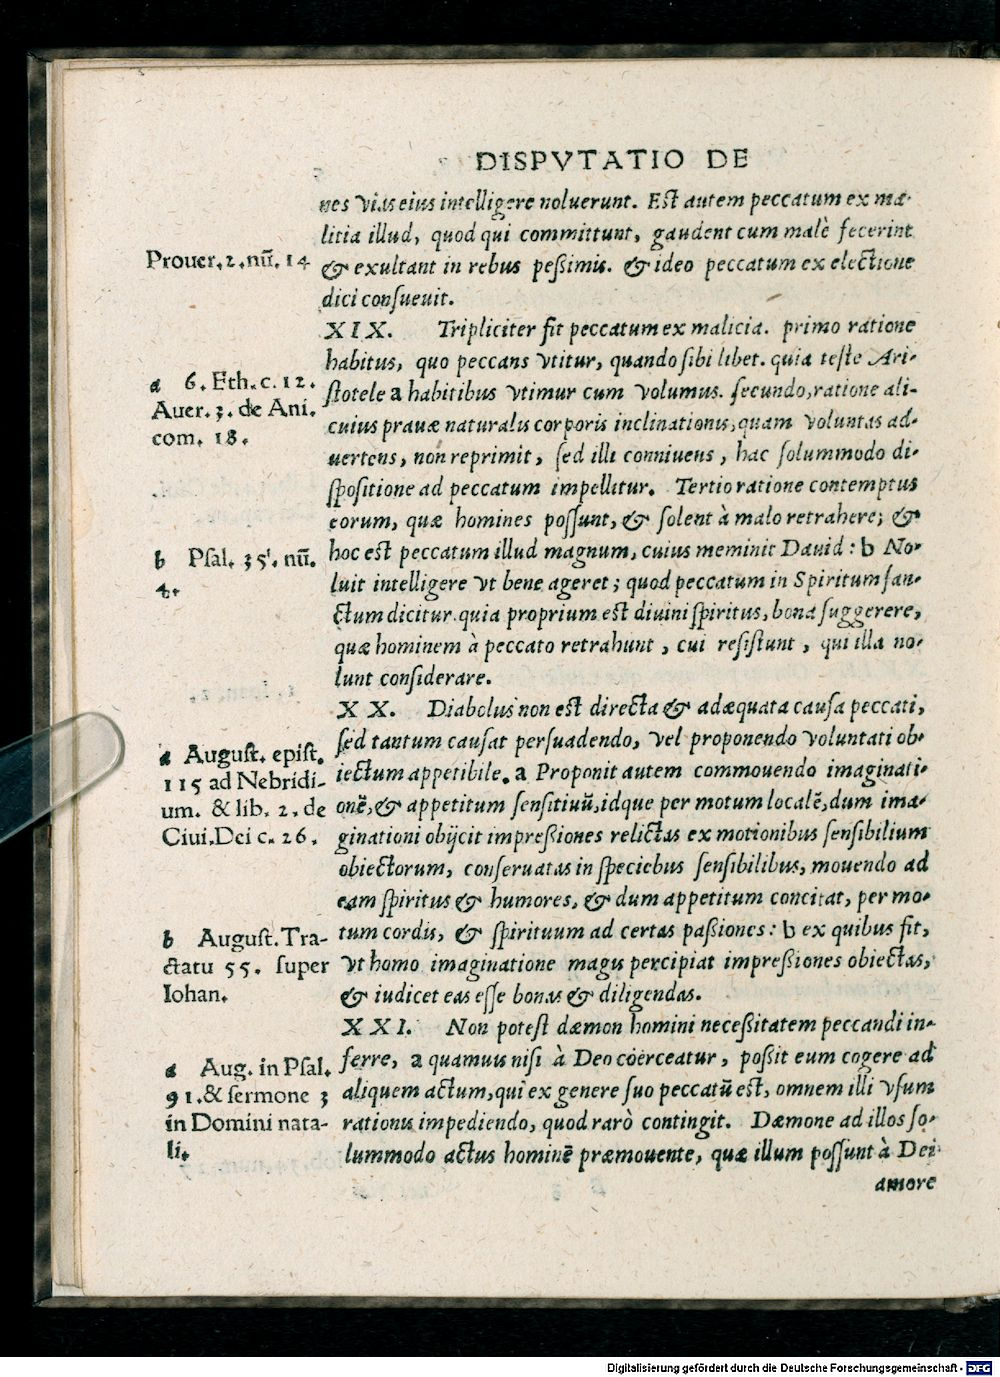 DISPVTATIO DE
nes vias eius intelligere noluerunt. Est autem peccatum ex ma-
litia illud, quod qui committunt, gaudent cum malè fecerint
Prouer. 2. nū. 14
& exultant in rebus peßimis. & ideo peccatum ex electione
dici consueuit.
XIX. Tripliciter fit peccatum ex malicia. primo ratione
habitus, quo peccans vtitur, quando sibi libet. quia teste Ari-
a 6. Eth. c. 12.
Auer. 3. de Ani.
com. 18.
stotele a habitibus vtimur cum volumus. secundo, ratione ali-
cuius prauæ naturalis corporis inclinationis, quam voluntas ad-
uertens, non reprimit, sed illi conniuens, hac solummodo di-
spositione ad peccatum impellitur. Tertio ratione contemptus
eorum, quæ homines possunt, & solent à malo retrahere; &
b Psal. 35. nū.
4.
hoc est peccatum illud magnum, cuius meminit Dauid: b No-
luit intelligere vt bene ageret; quod peccatum in Spiritum san-
ctum dicitur. quia proprium est diuini spiritus, bona suggerere,
quæ hominem à peccato retrahunt, cui resistunt, qui illa no-
lunt considerare.
XX. Diabolus non est directa & adæquata causa peccati,
sed tantum causat persuadendo, vel proponendo voluntati ob-
a August. epist.
115 ad Nebridi-
um. & lib. 2. de
Ciui. Dei c. 26.
iectum appetibile. a Proponit autem commouendo imaginati-
onē, & appetitum sensitiuū, idque per motum localē, dum ima-
ginationi obijcit impreßiones relictas ex motionibus sensibilium
obiectorum, conseruatas in speciebus sensibilibus, mouendo ad
eam spiritus & humores, & dum appetitum concitat, per mo-
b August. Tra-
ctatu 55. super
Iohan.
tum cordis, & spirituum ad certas paßiones: b ex quibus fit,
vt homo imaginatione magis percipiat impreßiones obiectas,
& iudicet eas esse bonas & diligendas.
XXI. Non potest dæmon homini neceßitatem peccandi in-
a Aug. in Psal.
91. & sermone 3
in Domini nata-
li.
ferre, a quamuis nisi à Deo coërceatur, poßit eum cogere ad
aliquem actum, qui ex genere suo peccatū est, omnem illi vsum
rationis impediendo, quod rarò contingit. Dæmone ad illos so-
lummodo actus hominē præmouente, quæ illum possunt à Dei
amore
Digitalisierung gefördert durch die Deutsche Forschungsgemeinschaft - DFG